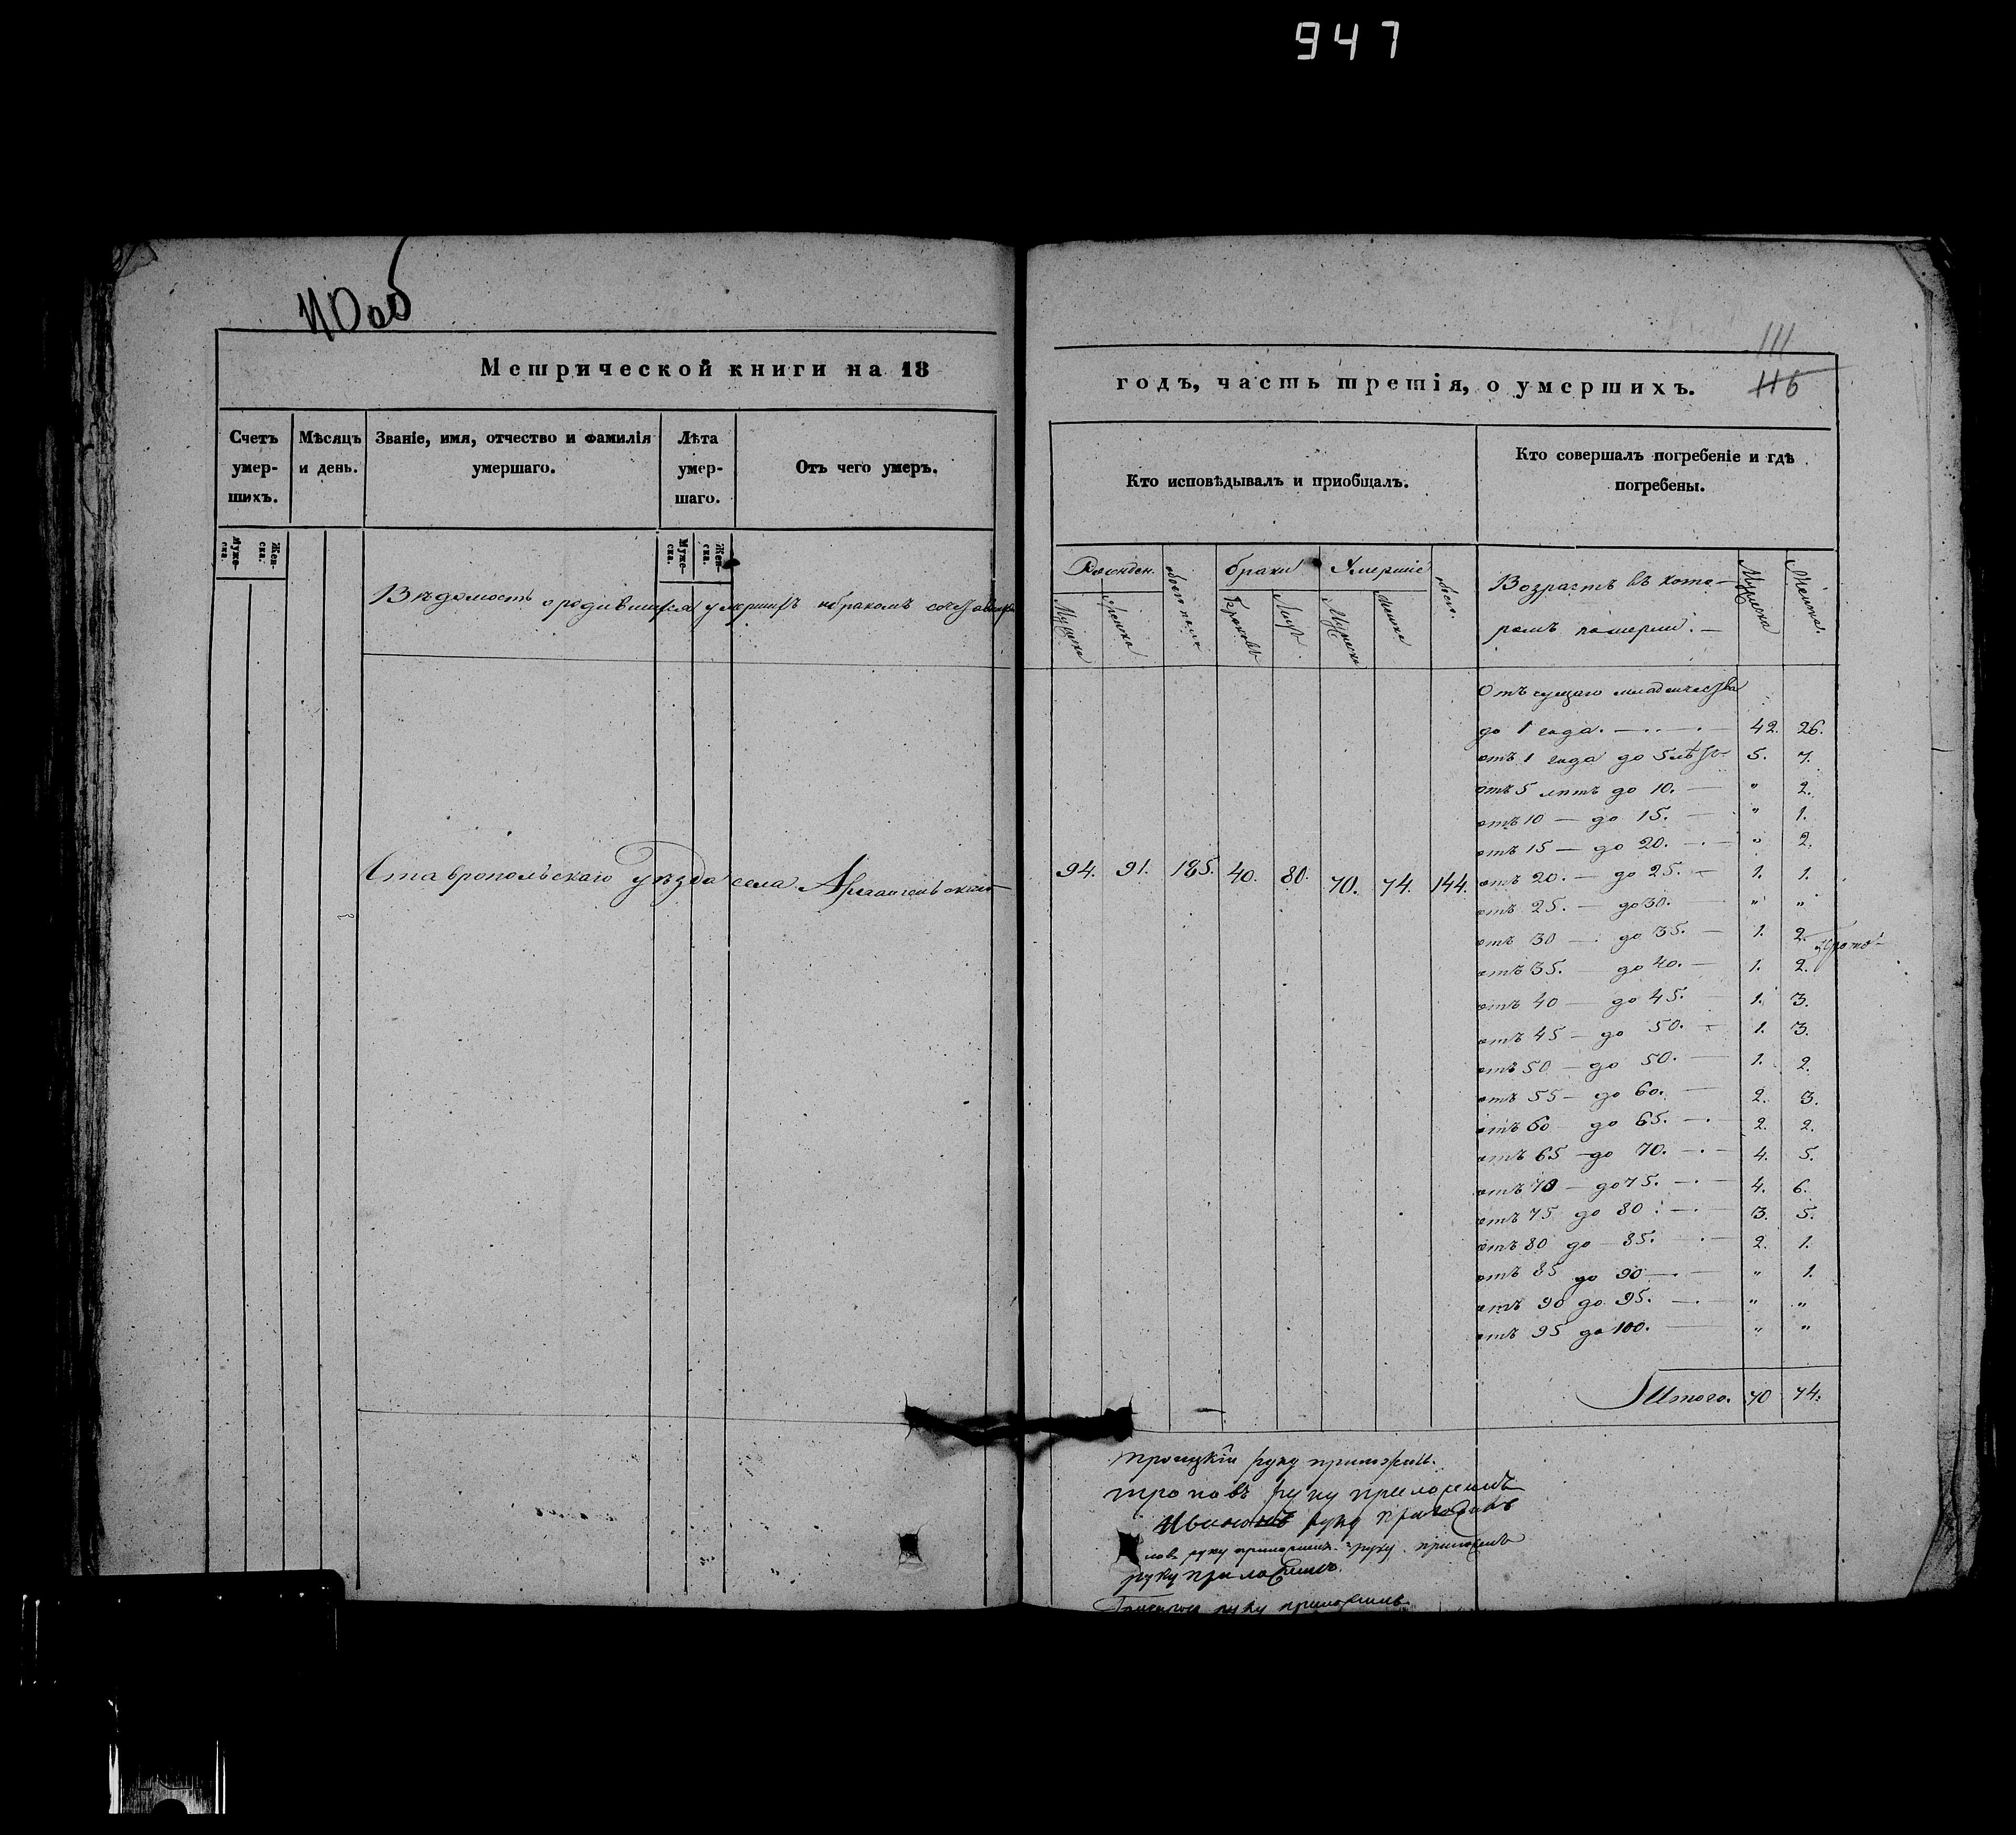 947
110 об
111
116
Метрической книги на 18
годъ, часть третія, о умершихъ.
Счетъ умер-шихъ.
Мѣсяцъ и день.
Званіе, имя, отчество и фамилія умершаго.
Лѣта умер-шаго.
Отъ чего умеръ.
Кто исповѣдывалъ и пріобщалъ.
Кто совершалъ погребеніе и гдѣ погребены.
Муже-ска.
Жен-ска.
Муже-ска.
Жен-ска.
Вѣдомость о родившихся умершихъ и бракомъ
Рожден.
браки
Умершіе
всего.
Мужска
женска
обоег пола
Браковъ
Лицъ.
Мужска
женска
Возрастъ въ кото-
ромъ померли. —
Мужска
Женска.
Ставропольскаго Уѣзда села Архангельскаго
94. 91. 185. 40. 80. 70. 74. 144.
Отъ сущаго младенчества
до 1 года. — 42. 26.
отъ 1 года до 5 лѣтъ 5. 7.
отъ 5 лѣтъ до 10. — " 2.
отъ 10 — до 15. — " 1.
отъ 15 — до 20. — " 2.
отъ 20. — до 25. — 1. 1.
отъ 25. — до 30. — " "
отъ 30 — до 35. — 1. 2.
отъ 35. — до 40. — 1. 2.
отъ 40 — до 45. — 1. 3.
отъ 45 — до 50. — 1. 3.
отъ 50 — до 50. — 1. 2.
отъ 55 — до 60. — 2. 3.
отъ 60 — до 65. — 2. 2.
отъ 65 — до 70. — 4. 5.
отъ 70 — до 75. — 4. 6.
отъ 75 до 80. — 3. 5.
отъ 80 до 85. — 2. 1.
отъ 85 до 90 — " 1.
отъ 90 до 95. — " "
отъ 95 до 100. — " "
Итого. 70 74.
Троицкій руку приложилъ.
руку приложилъ
руку приложилъ
руку приложилъ. руку приложилъ
руку приложилъ
руку приложилъ